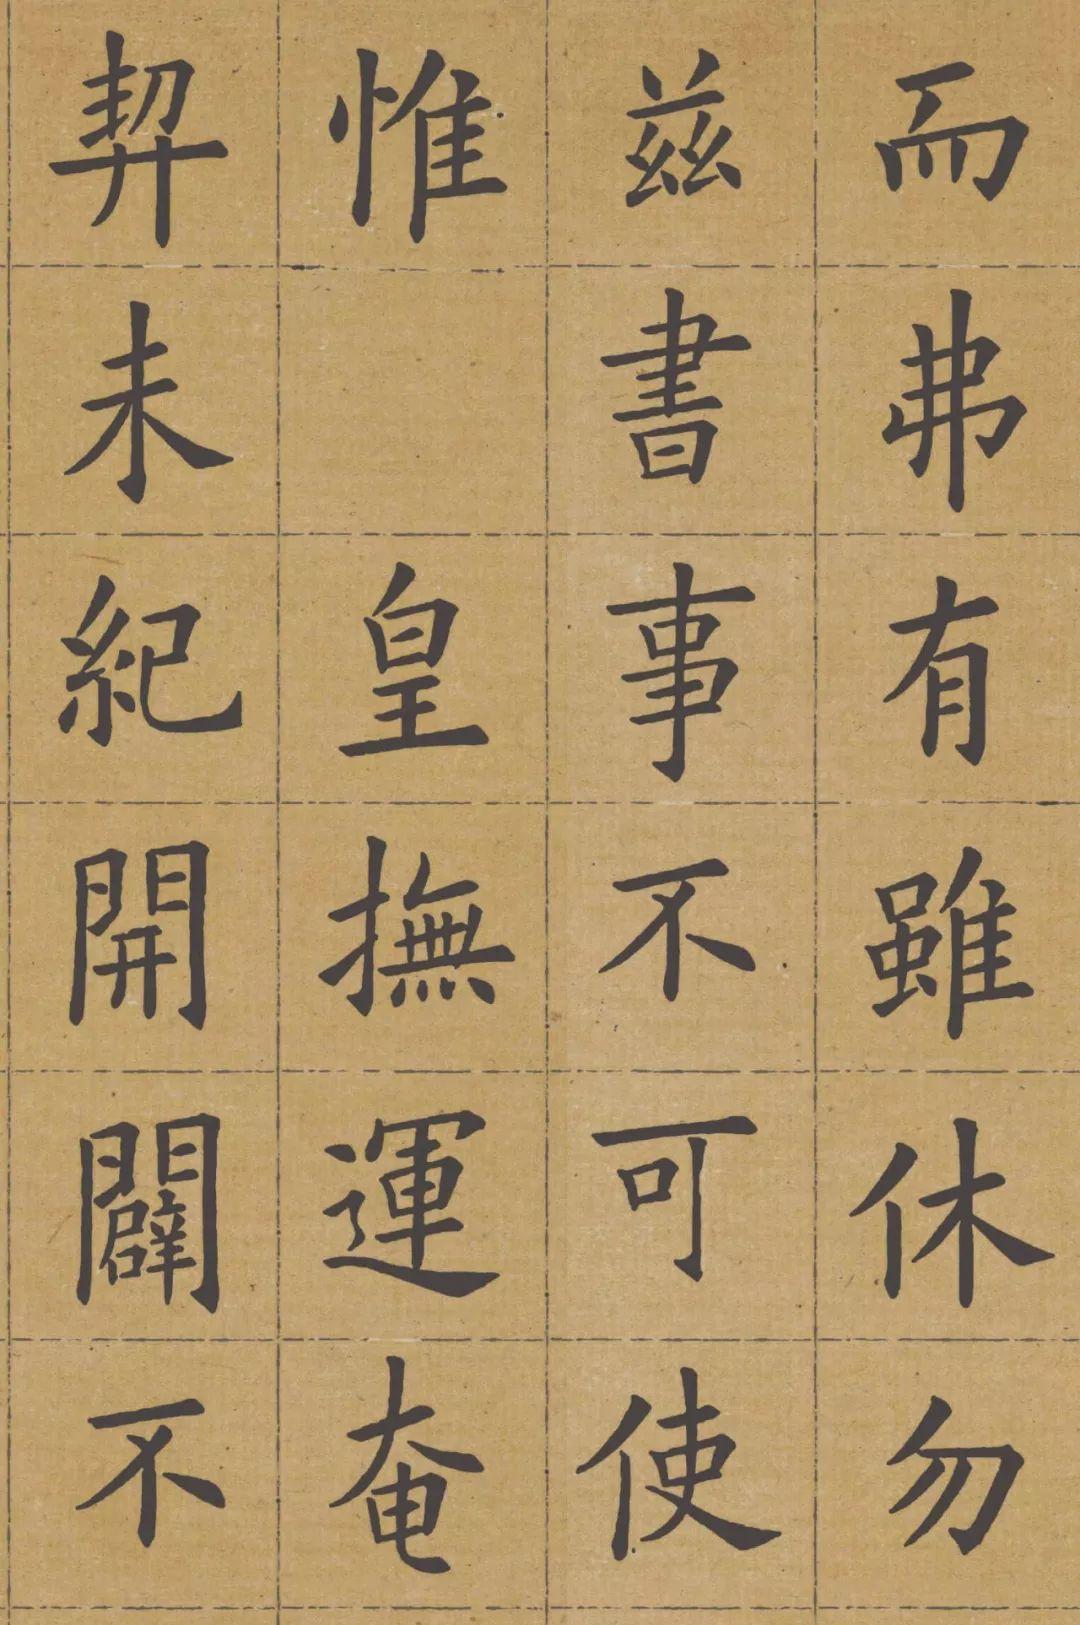 而弗有雖休勿
兹書事不可使
惟 皇撫運奄
契未紀開闢不